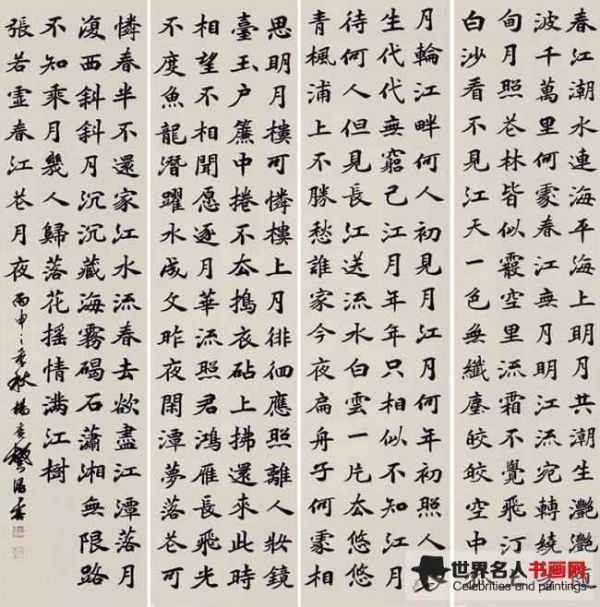 春江潮水連海平海上明月共潮生灧灧
波千萬里何處春江無月明江流宛轉繞
甸月照花林皆似霰空里流霜不覺飛汀
白沙看不見江天一色無纖塵皎皎空中
月輪江畔何人初見月江月何年初照人
生代代無窮已江月年年只相似不知江月
待何人但見長江送流水白雲一片去悠悠
青楓浦上不勝愁誰家今夜扁舟子何處相
思明月樓可憐樓上月徘徊應照離人妝鏡
臺玉戶簾中捲不去搗衣砧上拂還來此時
相望不相聞愿逐月華流照君鴻雁長飛光
不度魚龍潛躍水成文昨夜閑潭夢落花可
憐春半不還家江水流春去欲盡江潭落月
復西斜斜月沉沉藏海霧碣石瀟湘無限路
不知乘月幾人歸落花搖情滿江樹
張若虛春江花月夜丙申之
世界名人书画网
Celebrities and paintings